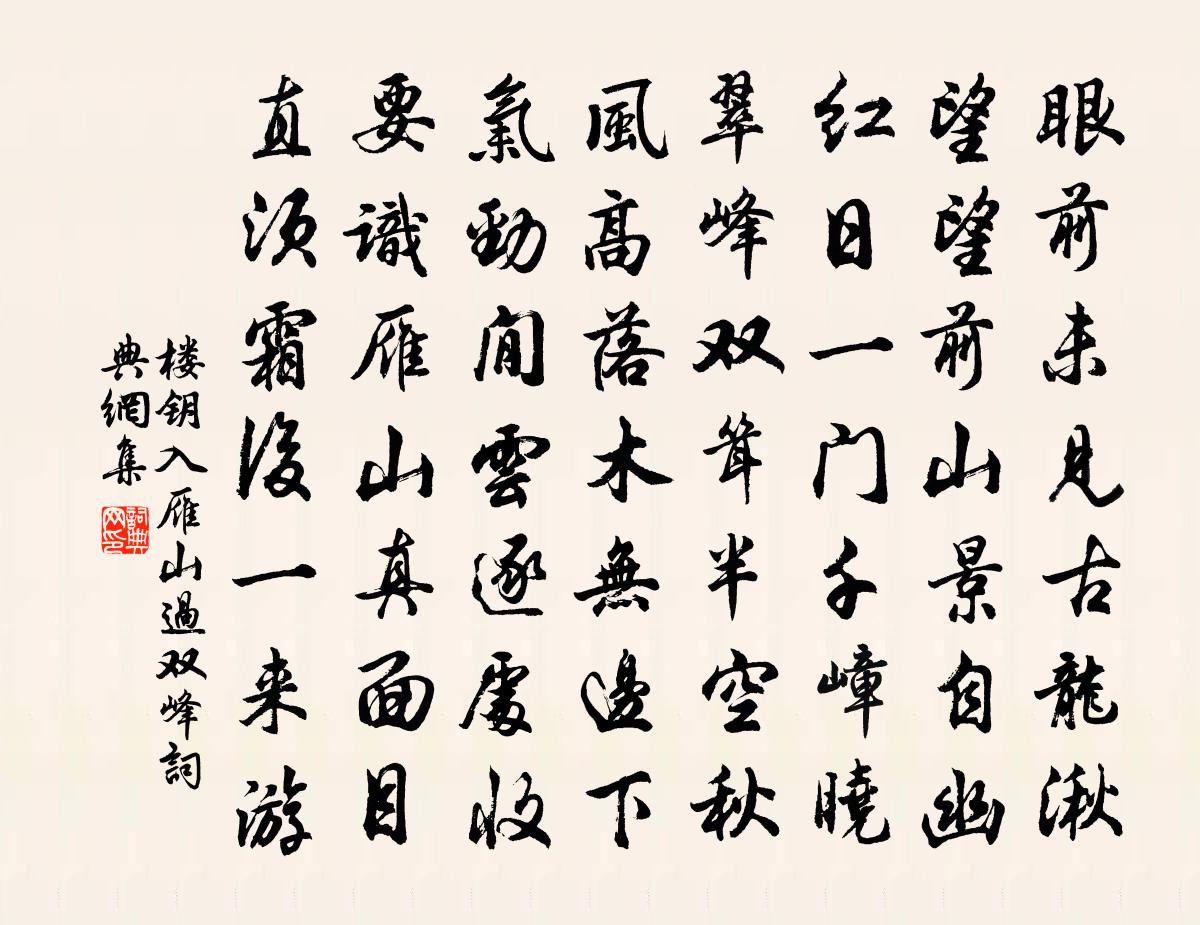 眼前未見古龍湫
望望前山景自幽
红日一门千嶂曉
翠峰双耸半空秋
風高落木無邊下
氣勁閒雲逐處收
要識雁山真面目
直须霜後一来游
楼钥入雁山過双峰詞
典網集
詞典
网印